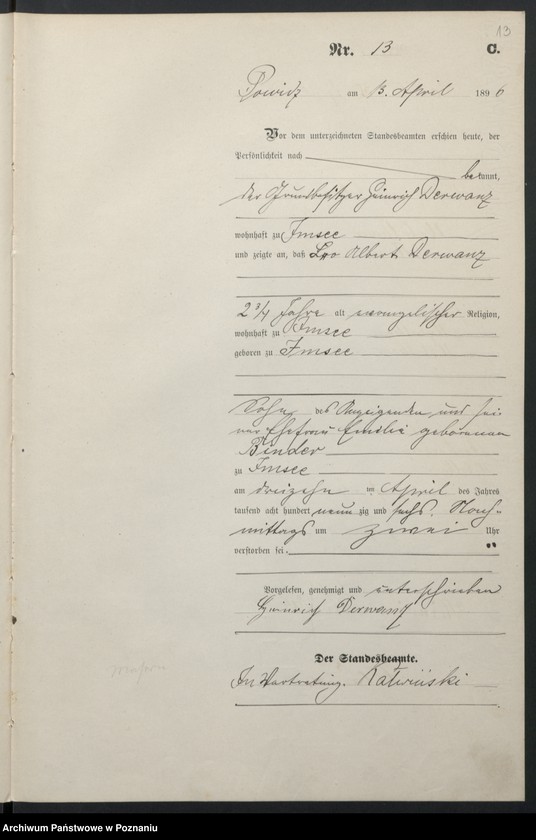 13
Nr. 13 C.
Powidz am 13. April 1896
Vor dem unterzeichneten Standesbeamten erschien heute, der
Persönlichkeit nach
bekannt,
der Grundbesitzer Heinrich Derwanz
wohnhaft zu Imsee
und zeigte an, daß Leo Albert Derwanz
2 3/4 Jahre alt evangelischer Religion,
wohnhaft zu Imsee
geboren zu Imsee
Sohn des Anzeigenden und sei-
ner Ehefrau Emilie geborenen
Binder
zu Imsee
am dreizehn ten April des Jahres
tausend acht hundert neunzig und sechs. Nach-
mittags um zwei Uhr
verstorben sei.
Vorgelesen, genehmigt und unterschrieben
Heinrich Derwanz
Der Standesbeamte.
In Vertretung.
Archiwum Państwowe w Poznaniu